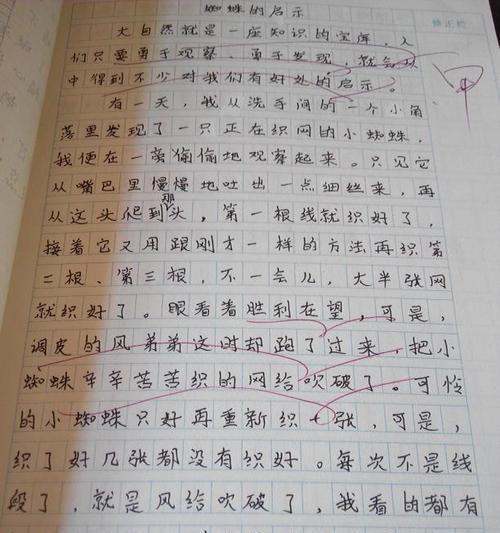 蜘蛛的启示
修正栏
大自然就是一座知识的宝库，人
们只要勇于观察、勇于发现，就会从
中得到不少对我们有好处的启示。
有一天，我从洗手间的一个小角
落里发现了一只正在织网的小蜘蛛，
我便在一旁偷偷地观察起来。只见它
从嘴巴里慢慢地吐出一点细丝来，再
从这头爬到那头，第一根线就织好了，
接着它又用跟刚才一样的方法再织第
二根、第三根，不一会儿，大半张网
就织好了。眼看着胜利在望，可是，
调皮的风弟弟这时却跑了过来，把小
蜘蛛辛辛苦苦织的网给吹破了。可怜
的小蜘蛛只好再重新织一张，可是，
织了好几张都没有织好。每次不是线
段了，就是风给吹破了，我看的都有